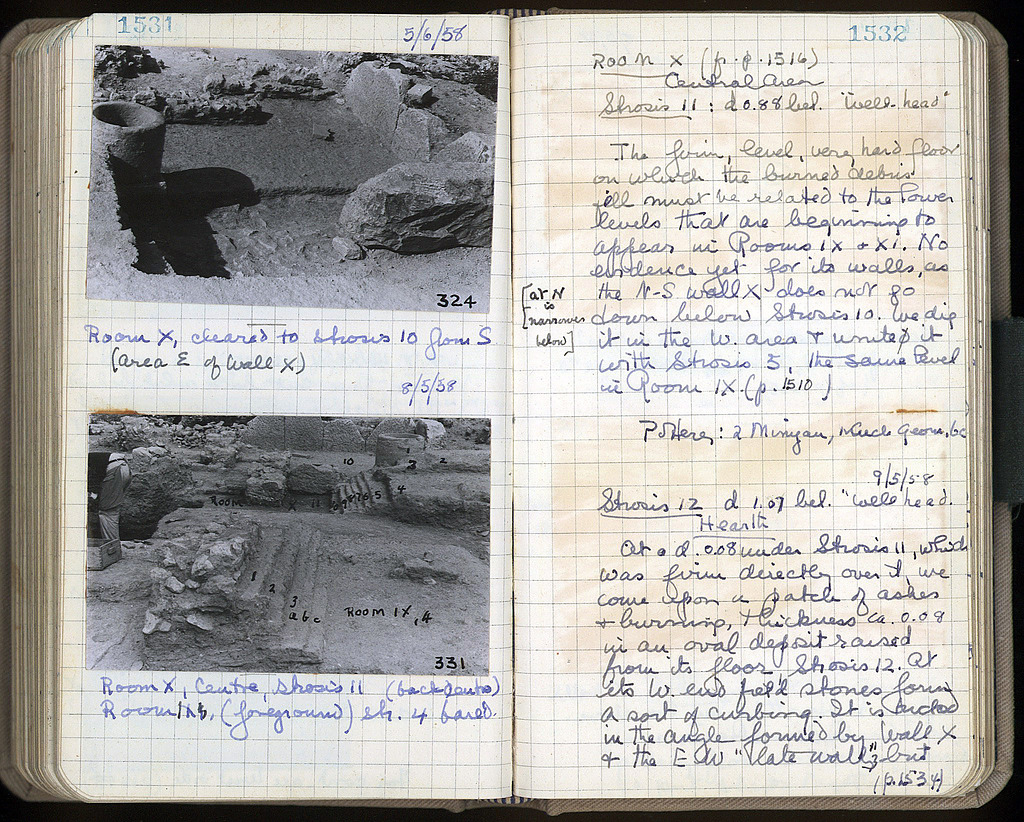 1531
5/6/58
324
Room X, cleared to Strosis 10 from S
(area E of Wall X)
8/5/58
10
1
3
2
4
ROOM X 11
8 7 6 5
1
2
3
a b c
ROOM IX, 4
331
Room X, Centre, Strosis 11 (back centre)
Room IX, (foreground) str. 4 bared.
1532
Room X (p.p. 1516)
Central Area
Strosis 11 : d 0.88 bel. "well-head"
The firm, level, very hard floor
on which the burned debris
fell must be related to the lower
levels that are beginning to
appear in Rooms IX & XI. No
evidence yet for its walls, as
the N-S wall X does not go
[at N is narrower below]
down below Strosis 10. We dig
it in the W. area & united it
with Strosis 3, the same level
in Room IX. (p. 1510)
Pottery: 2 Minyan, Much Geom,
9/5/58
Strosis 12 d 1.07 bel. "well head.
Hearth
At a d. 0.08 under Strosis 11, which
was firm directly over it, we
come upon a patch of ashes
& burning, thickness ca. 0.08
in an oval deposit raised
from its floor, Strosis 12. At
its W. end field stones form
a sort of curbing. It is
in the angle formed by Wall X
& the E-W "late wall 3" but
(p. 1534)